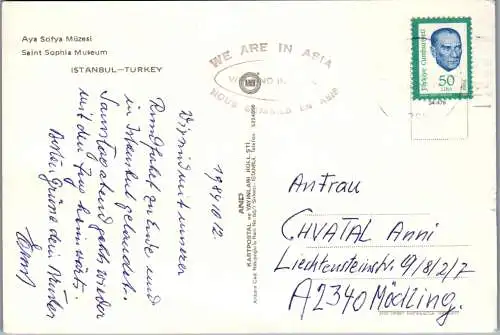 Aya Sofya Müzesi
Saint Sophia Museum
ISTANBUL–TURKEY
WE ARE IN ASIA
NOUS SOMMES EN ASIE
Türkiye Cumhuriyeti
50
LIRA
AND
KARTPOSTAL ve YAYINLARI KOLL. ŞTİ.
1984 10 12
Wir sind mit unserer
Rundfahrt zu Ende und
in Istanbul gelandet.
Samstag abend geht's wieder
mit dem Zug heimwärts.
Besten Grüße dein Bruder
Ernst
An Frau
CHVATAL Anni
Liechtensteinstr. 9/8/2/7
A2340 Mödling.